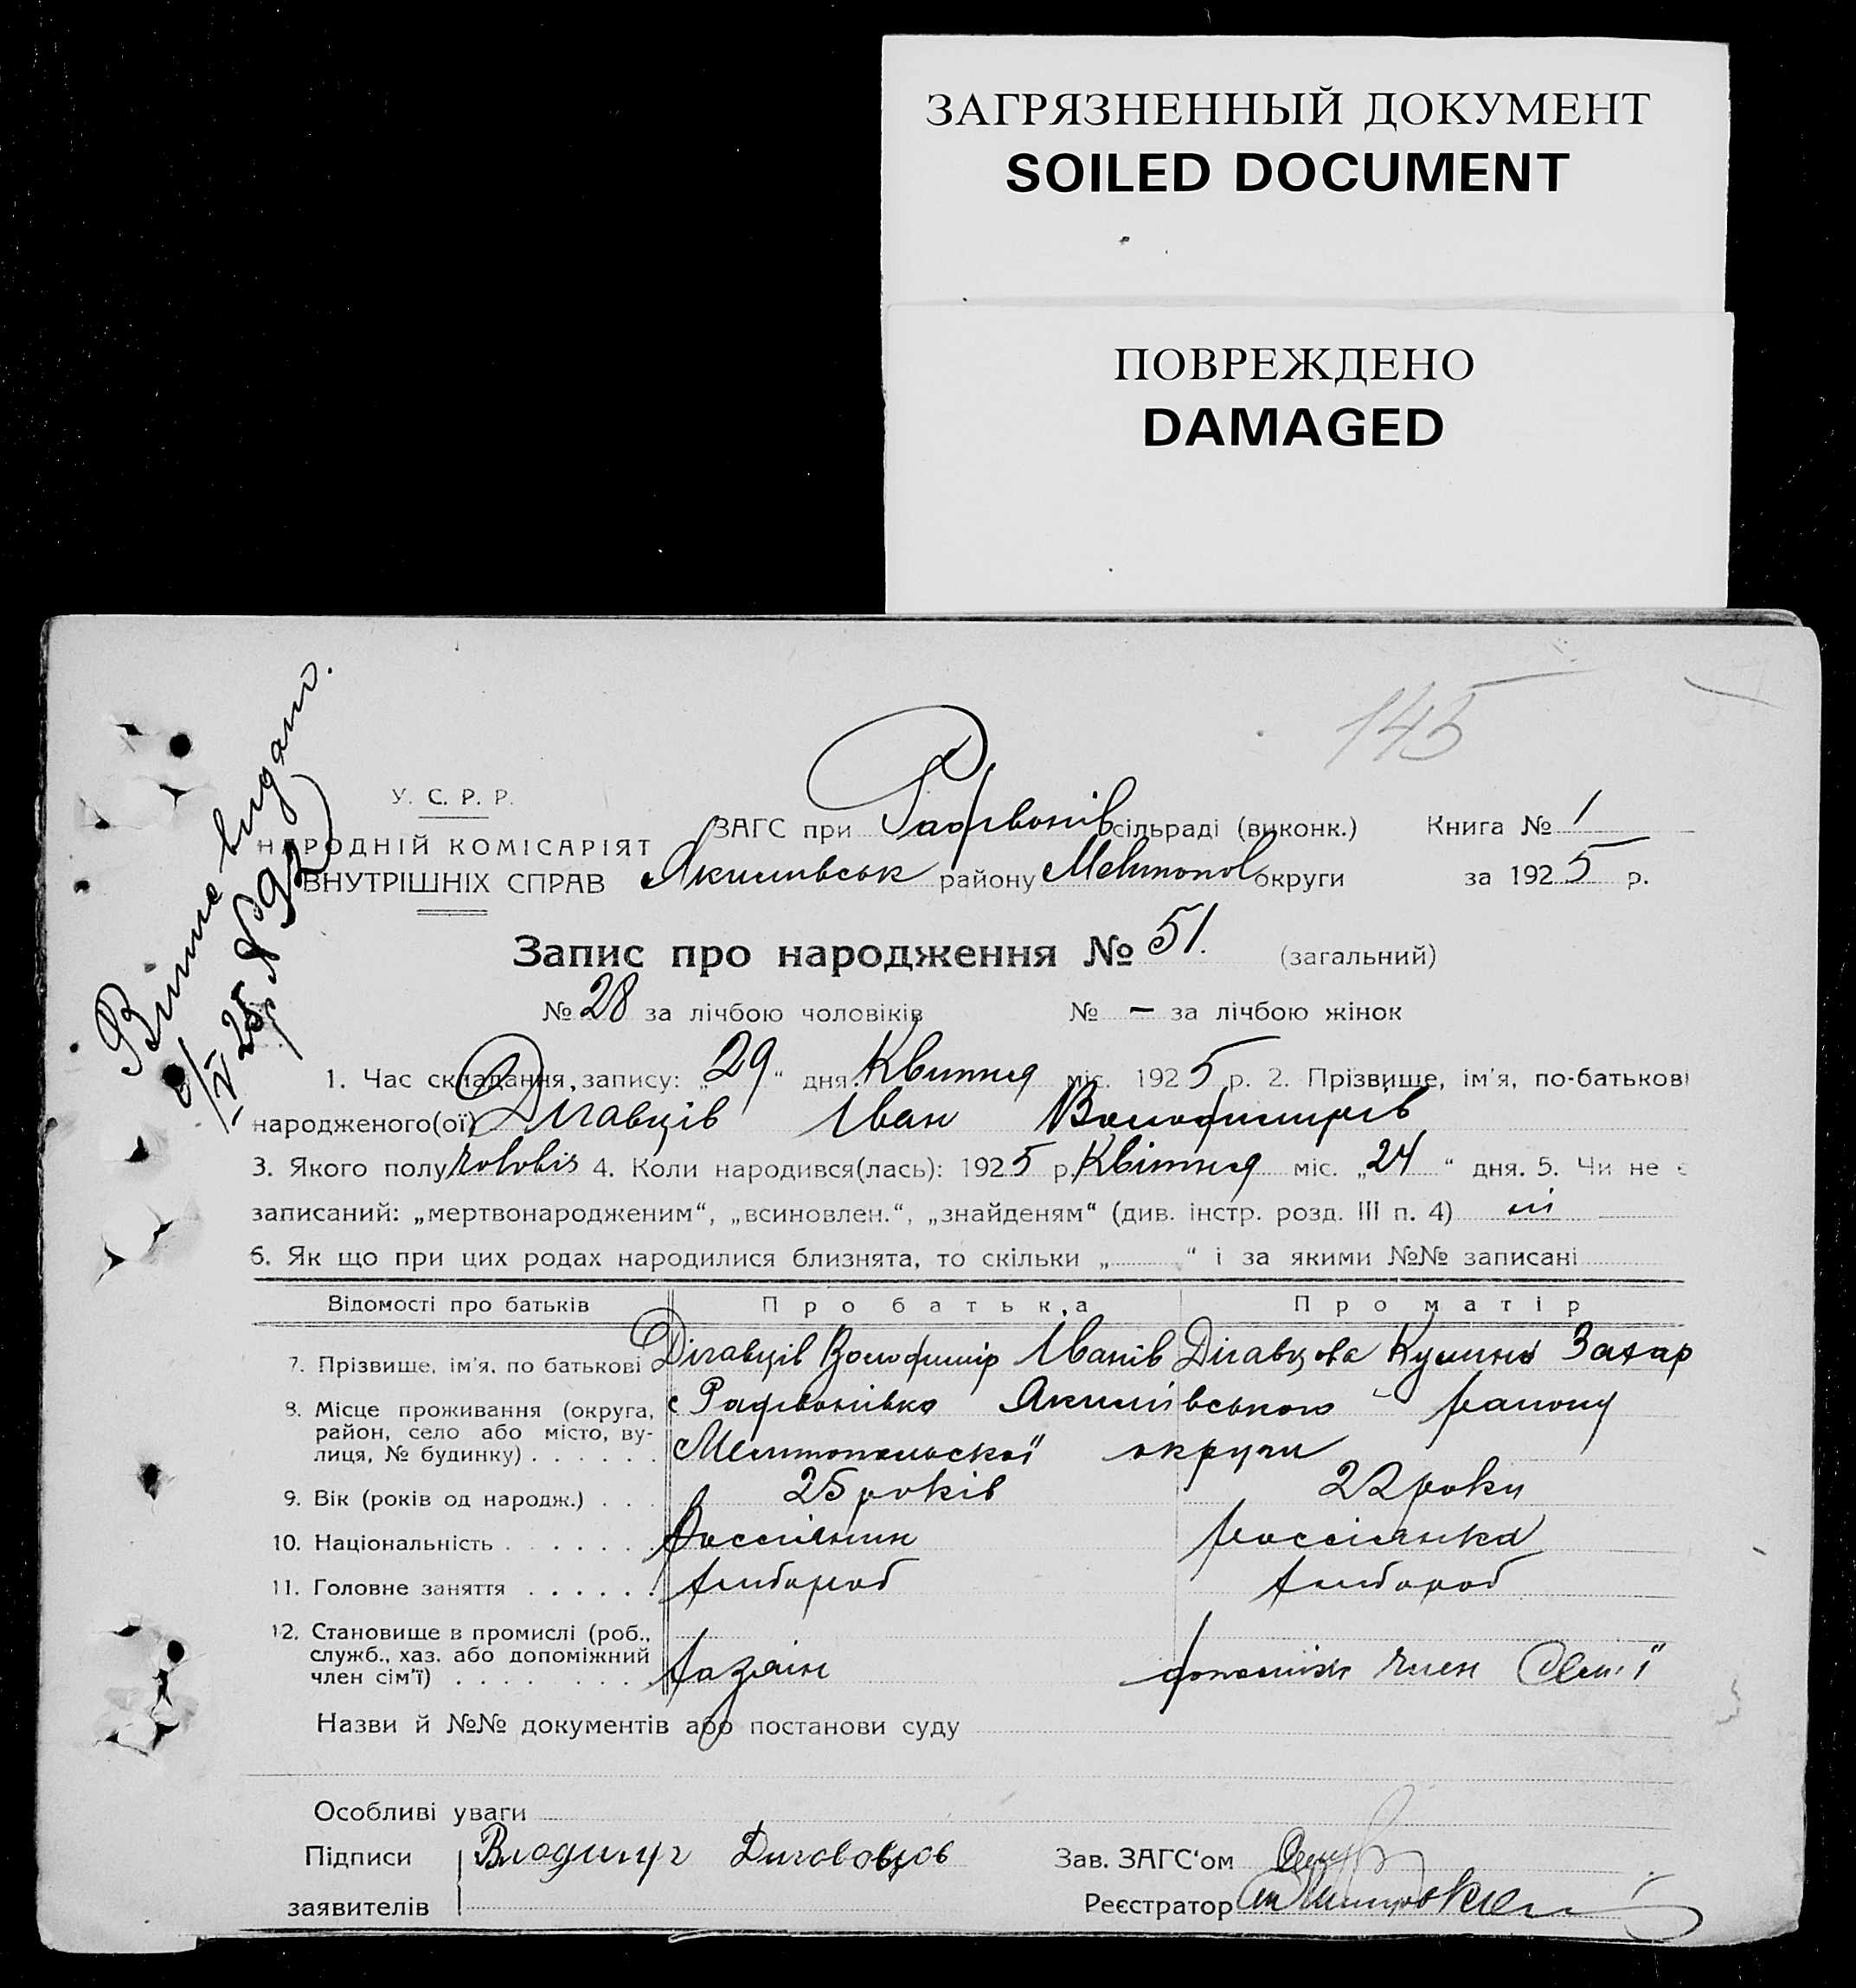 ЗАГРЯЗНЕННЫЙ ДОКУМЕНТ
SOILED DOCUMENT
ПОВРЕЖДЕНО
DAMAGED
145
Витяг видано.
У. С. Р. Р.
НАРОДНІЙ КОМІСАРІЯТ
ВНУТРІШНІХ СПРАВ
ЗАГС при Радівонів сільраді (виконк.) Книга № 1
Якимівськ району Мелитопол округи за 1925 р.
Запис про народження № 51. (загальний)
№ 28 за лічбою чоловіків № – за лічбою жінок
1. Час складання, запису: „29“ дня Квитня міс. 1925 р. 2. Прізвище, ім'я, по-батькові
народженого(ої) Дігавців Іван Володимирів
3. Якого полу чоловіч 4. Коли народився(лась): 1925 р. Квітня міс. „24“ дня. 5. Чи не є
записаний: „мертвонародженим“, „всиновлен.“, „знайденям“ (див. інстр. розд. III п. 4) ні
6. Як що при цих родах народилися близнята, то скільки „ “ і за якими №№ записані
Відомості про батьків Про батька Про матір
7. Прізвище, ім'я, по батькові Дігавців Володимір Іванів Дигавцова Кулина Захар
8. Місце проживання (округа, район, село або місто, вулиця, № будинку) с Радівонівка Якимівського району
Мелитопольскої округи
9. Вік (років од народж.) 25 років 22 роки
10. Національність россіянин россіянка
11. Головне заняття хлібороб хлібороб
12. Становище в промислі (роб., служб., хаз. або допоміжний член сім'ї) хазяін допоміж член Семьї
Назви й №№ документів або постанови суду
Особливі уваги
Підписи Владимир Диговцов Зав. ЗАГС'ом
заявителів Реєстратор